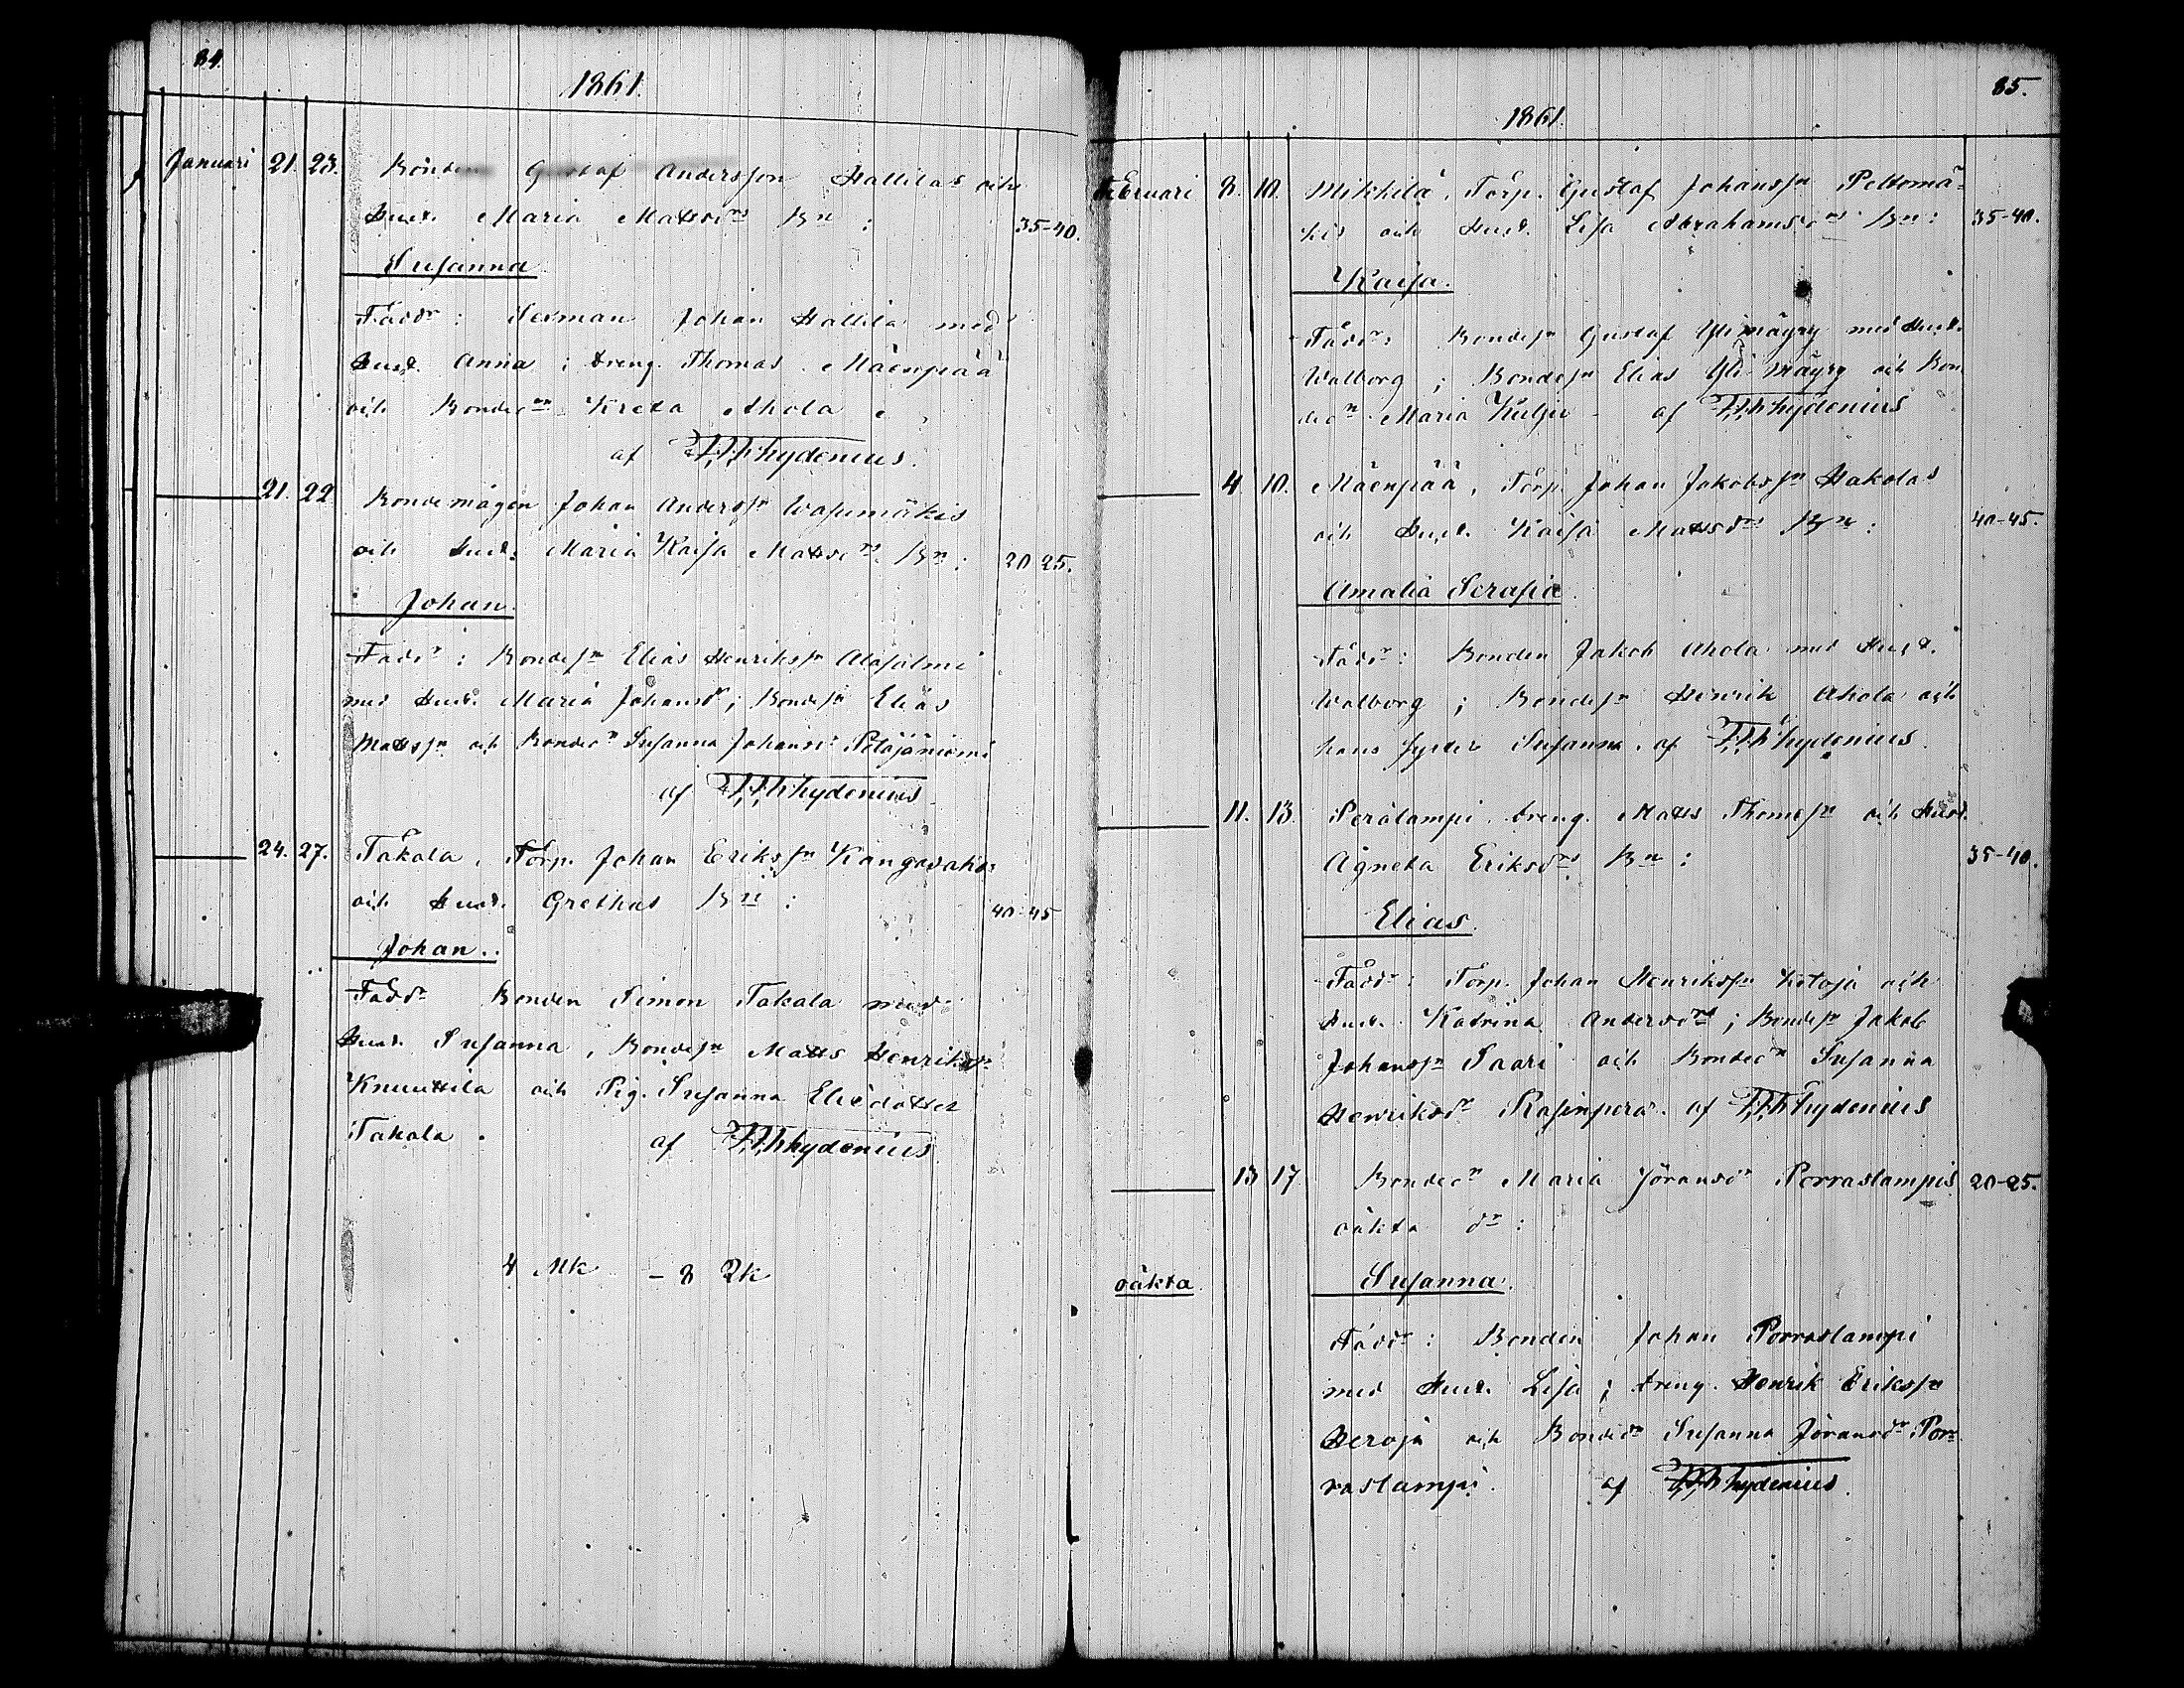 84.
1861.
Januari 21. 23. Bonden Gustaf Andersson Hallilas och
Hust. Maria Mattsdrs Bn : 35-40.
Susanna
Faddr : Sexman Johan Hallila med
Hust. Anna ; dreng. Thomas Mäenpää
och Bondedn Kreta Ahola
af F.F. Chydenius.
21. 22 Bondemågen Johan Anderssn
och Hust. Maria Kaisa Mattsdrs Bn : 20 25.
Johan.
Faddr : Bondesn Elias Henrikssn Alasalmi
med Hust. Maria Johansdr ; Bondesn Elias
Mattssn och Bondedr Susanna Johansdr
af F.F. Chydenius
24. 27. Takala, Torp. Johan Erikssn Kangasahos
och Hust. Grethas Bn : 40-45
Johan..
Faddr Bonden Simon Takala med
Hust. Susanna, Bondesn Matts Henrikssn
Knuuttila och Pig. Susanna Eliedotter
Takala. af F.F. Chydenius
4 Mk - 8 Qk
85.
1861.
Februari 8. 10. Mikkilä, Torp. Gustaf Johanssn Peltomä-
kis och Hust. Lisa Abrahamsdrs Bn : 35-40.
Kaisa.
Faddr: Bondesn Gustaf Ylimäyry med Hust.
Walborg ; Bondesn Elias Yli-Mäyry och Bon
dedn Maria Kulju - af F.F. Chydenius
4. 10. Mäenpää, Torp. Johan Jakobssn Hakolas
och Hust. Kaisa Mattsdrs Bn : 40-45.
Amalia Serafia.
Faddr: Bonden Jakob Ahola med Hust.
Walborg ; Bondesn Henrik Ahola och
hans syster Susanna. af F.F. Chydenius.
11. 13. Perälampi, dreng. Matts Thomessn och Hust.
Agneta Eriksdrs Bn : 35-40.
Elias.
Faddr : Torp. Johan Henrikssn Ketoja och
Hust. Katrina Andersdr ; Bondesn Jakob
Johanssn Saari och Bondedn Susanna
Henriksdr af F.F. Chydenius
13 17 Bondedn Maria Jöransdr Porraslampis 20-25.
oäkta dr :
oäkta. Susanna.
Faddr : Bonden Johan Porraslampi
med Hust. Lisa ; dreng. Henrik Erikssn
Heroja och Bondedr Susanna Jöransdr Por-
raslampi. af F.F. Chydenius.